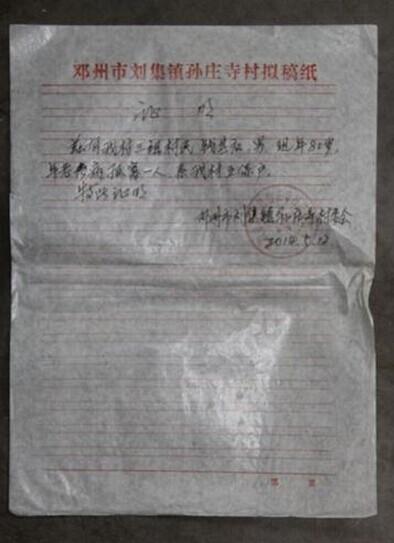 邓州市刘集镇孙庄寺村拟稿纸
证明
兹有我村三组村民 男 现年80岁,
年老多病孤寡一人,系我村五保户。
特此证明
邓州市刘集镇孙庄寺村委会
2014.5.12
第 页